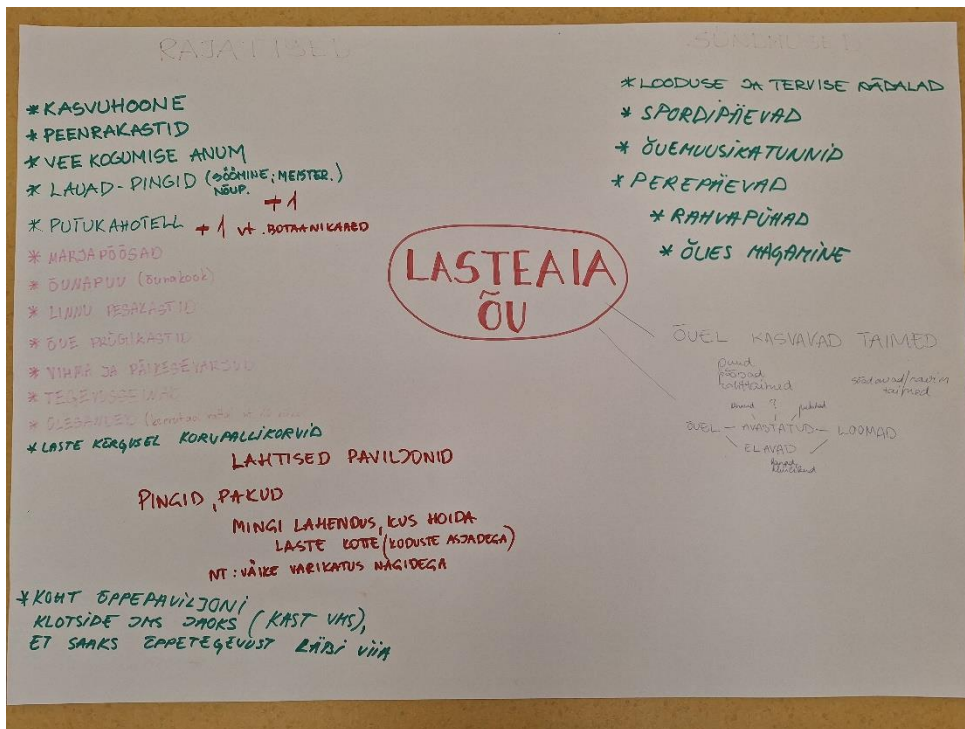 RAJATISED
* KASVUHOONE
* PEENRAKASTID
* VEE KOGUMISE ANUM
* LAUAD-PINGID (SÖÖMINE; MEISTER.)
NÕUP.
+1
* PUTUKAHOTELL +1 vt. BOTAANIKAAED
* MARJAPÕÕSAD
* ÕUNAPUU (õunakook)
* LINNU PESAKASTID
* ÕUE PRÜGIKASTID
* VIHMA JA PÄIKESEVARJUD
* TEGEVUSSEINAD
* LASTE KÕRGUSEL KORVPALLIKORVID
LAHTISED PAVILJONID
PINGID, PAKUD
MINGI LAHENDUS, KUS HOIDA
LASTE KOTTE (KODUSTE ASJADEGA)
NT: VÄIKE VARIKATUS NAGIDEGA
* KOHT ÕPPEPAVILJONI
KLOTSIDE JMS JAOKS (KAST VMS),
ET SAAKS ÕPPETEGEVUST LÄBI VIIA
LASTEAIA
ÕU
SÜNDMUSED
* LOODUSE JA TERVISE NÄDALAD
* SPORDIPÄEVAD
* ÕUEMUUSIKATUNNID
* PEREPÄEVAD
* RAHVAPÜHAD
* ÕUES MAGAMINE
ÕUEL KASVAVAD TAIMED
puud
põõsad
söödavad/ravim
taimed
?
putukad
ÕUEL - AVASTATUD - LOOMAD
ELAVAD